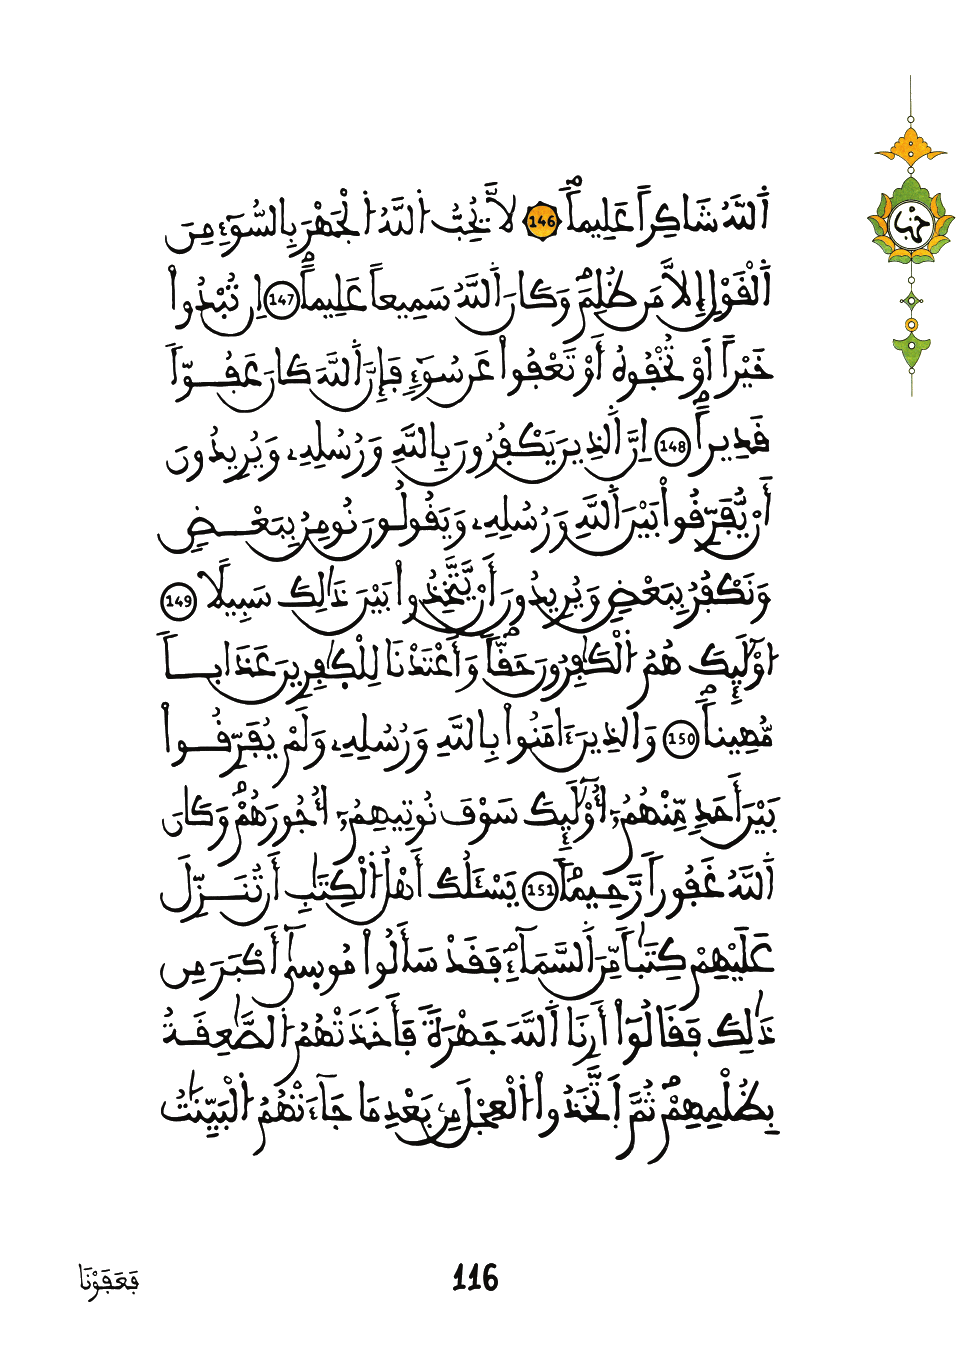 اَ۬للَّهُ شَاكِراً عَلِيماًۖ 146 لَّا يُحِبُّ اُ۬للَّهُ اُ۬لْجَهْرَ بِالسُّوٓءِ مِنَ
اَ۬لْقَوْلِ إِلَّا مَن ظُلِمَۖ وَكَانَ اَ۬للَّهُ سَمِيعاً عَلِيماًۖ 147 اِن تُبْدُواْ
خَيْراً اَوْ تُخْفُوهُ أَوْ تَعْفُواْ عَن سُوٓءٖ فَإِنَّ اَ۬للَّهَ كَانَ عَفُوّاٗ
قَدِيراًۖ 148 اِنَّ اَ۬لذِينَ يَكْفُرُونَ بِاللَّهِ وَرُسُلِهِۦ وَيُرِيدُونَ
أَنْ يُّفَرِّقُواْ بَيْنَ اَ۬للَّهِ وَرُسُلِهِۦ وَيَقُولُونَ نُومِنُ بِبَعْضٖ
وَنَكْفُرُ بِبَعْضٖ وَيُرِيدُونَ أَنْ يَّتَّخِذُواْ بَيْنَ ذَٰلِكَ سَبِيلًا 149
اوْلَٰٓئِكَ هُمُ اُ۬لْكَٰفِرُونَ حَقّاٗۖ وَأَعْتَدْنَا لِلْكَٰفِرِينَ عَذَاباٗ
مُّهِيناٗۖ 150 وَالذِينَ ءَامَنُواْ بِاللَّهِ وَرُسُلِهِۦ وَلَمْ يُفَرِّقُواْ
بَيْنَ أَحَدٖ مِّنْهُمُۥٓ أُوْلَٰٓئِكَ سَوْفَ نُوتِيهِمُۥٓ أُجُورَهُمْۖ وَكَانَ
اَ۬للَّهُ غَفُوراٗ رَّحِيماٗۖ 151 يَسْـَٔلُكَ أَهْلُ اُ۬لْكِتَٰبِ أَن تُنَزِّلَ
عَلَيْهِمْ كِتَٰباٗ مِّنَ اَ۬لسَّمَآءِۖ فَقَدْ سَأَلُواْ مُوس۪يٰٓ أَكْبَرَ مِن
ذَٰلِكَ فَقَالُوٓاْ أَرِنَا اَ۬للَّهَ جَهْرَةٗ فَأَخَذَتْهُمُ اُ۬لصَّٰعِقَةُ
بِظُلْمِهِمْۖ ثُمَّ اَ۪تَّخَذُواْ اُ۬لْعِجْلَ مِنۢ بَعْدِ مَا جَآءَتْهُمُ اُ۬لْبَيِّنَٰتُ
حزب
فَعَفَوْنَا
116